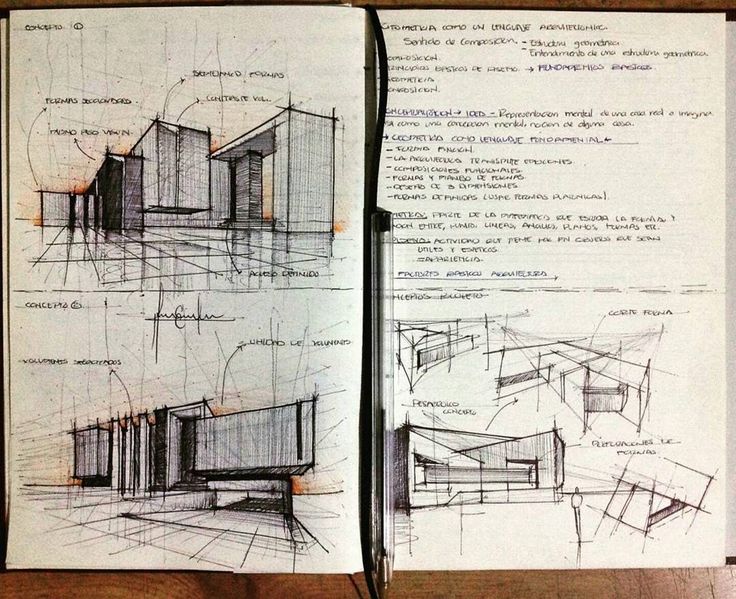 CONCEPTO 1
DESTAJANDO FORMAS
FORMAS SECCIONADAS
CONTRASTE VOL.
MISMO PESO VISUAL
ACCESO DEFINIDO
CONCEPTO 2
UNIDAD DE VOLUMENES
VOLUMENES
GEOMETRIA COMO UN LENGUAJE ARQUITECTONICO.
Sentido de composicion. - Estructura geometrica
Entendimiento de una estructura geometrica.
COMPOSICION.
PRINCIPIOS BASICOS DE DISEÑO → FUNDAMENTOS BASICOS.
GEOMETRIA
COMPOSICION.
CONCEPTUALIZACION → IDEA - Representacion mental de una cosa real o imaginaria
asi como una concepcion mental, nocion de alguna cosa.
→ GEOMETRIA COMO LENGUAJE FUNDAMENTAL ←
- FORMA FUNCION.
- LA ARQUITECTURA TRANSMITE EMOCIONES.
- COMPOSICIONES FUNCIONALES.
- FORMAS Y MANEJO DE FORMAS
- DISEÑO DE 3 DIMENSIONES.
- FORMAS DEFINIDAS (USAR FORMAS PLATONICAS).
GEOMETRIA: PARTE DE LA MATEMATICA QUE ESTUDIA LA FORMAS, Y
PUNTO, LINEAS, ANGULOS, PLANOS, FORMAS ETC.
DISEÑO: ACTIVIDAD QUE TIENE POR FIN OBJETOS QUE SEAN
UTILES Y ESTETICOS.
= APARIENCIA.
FACTORES BASICOS ARQUITECTURA
CONCEPTOS BOCETO
CORTE FORMA
DESARROLLO
CONCEPTO
PERFORACIONES DE
FORMAS